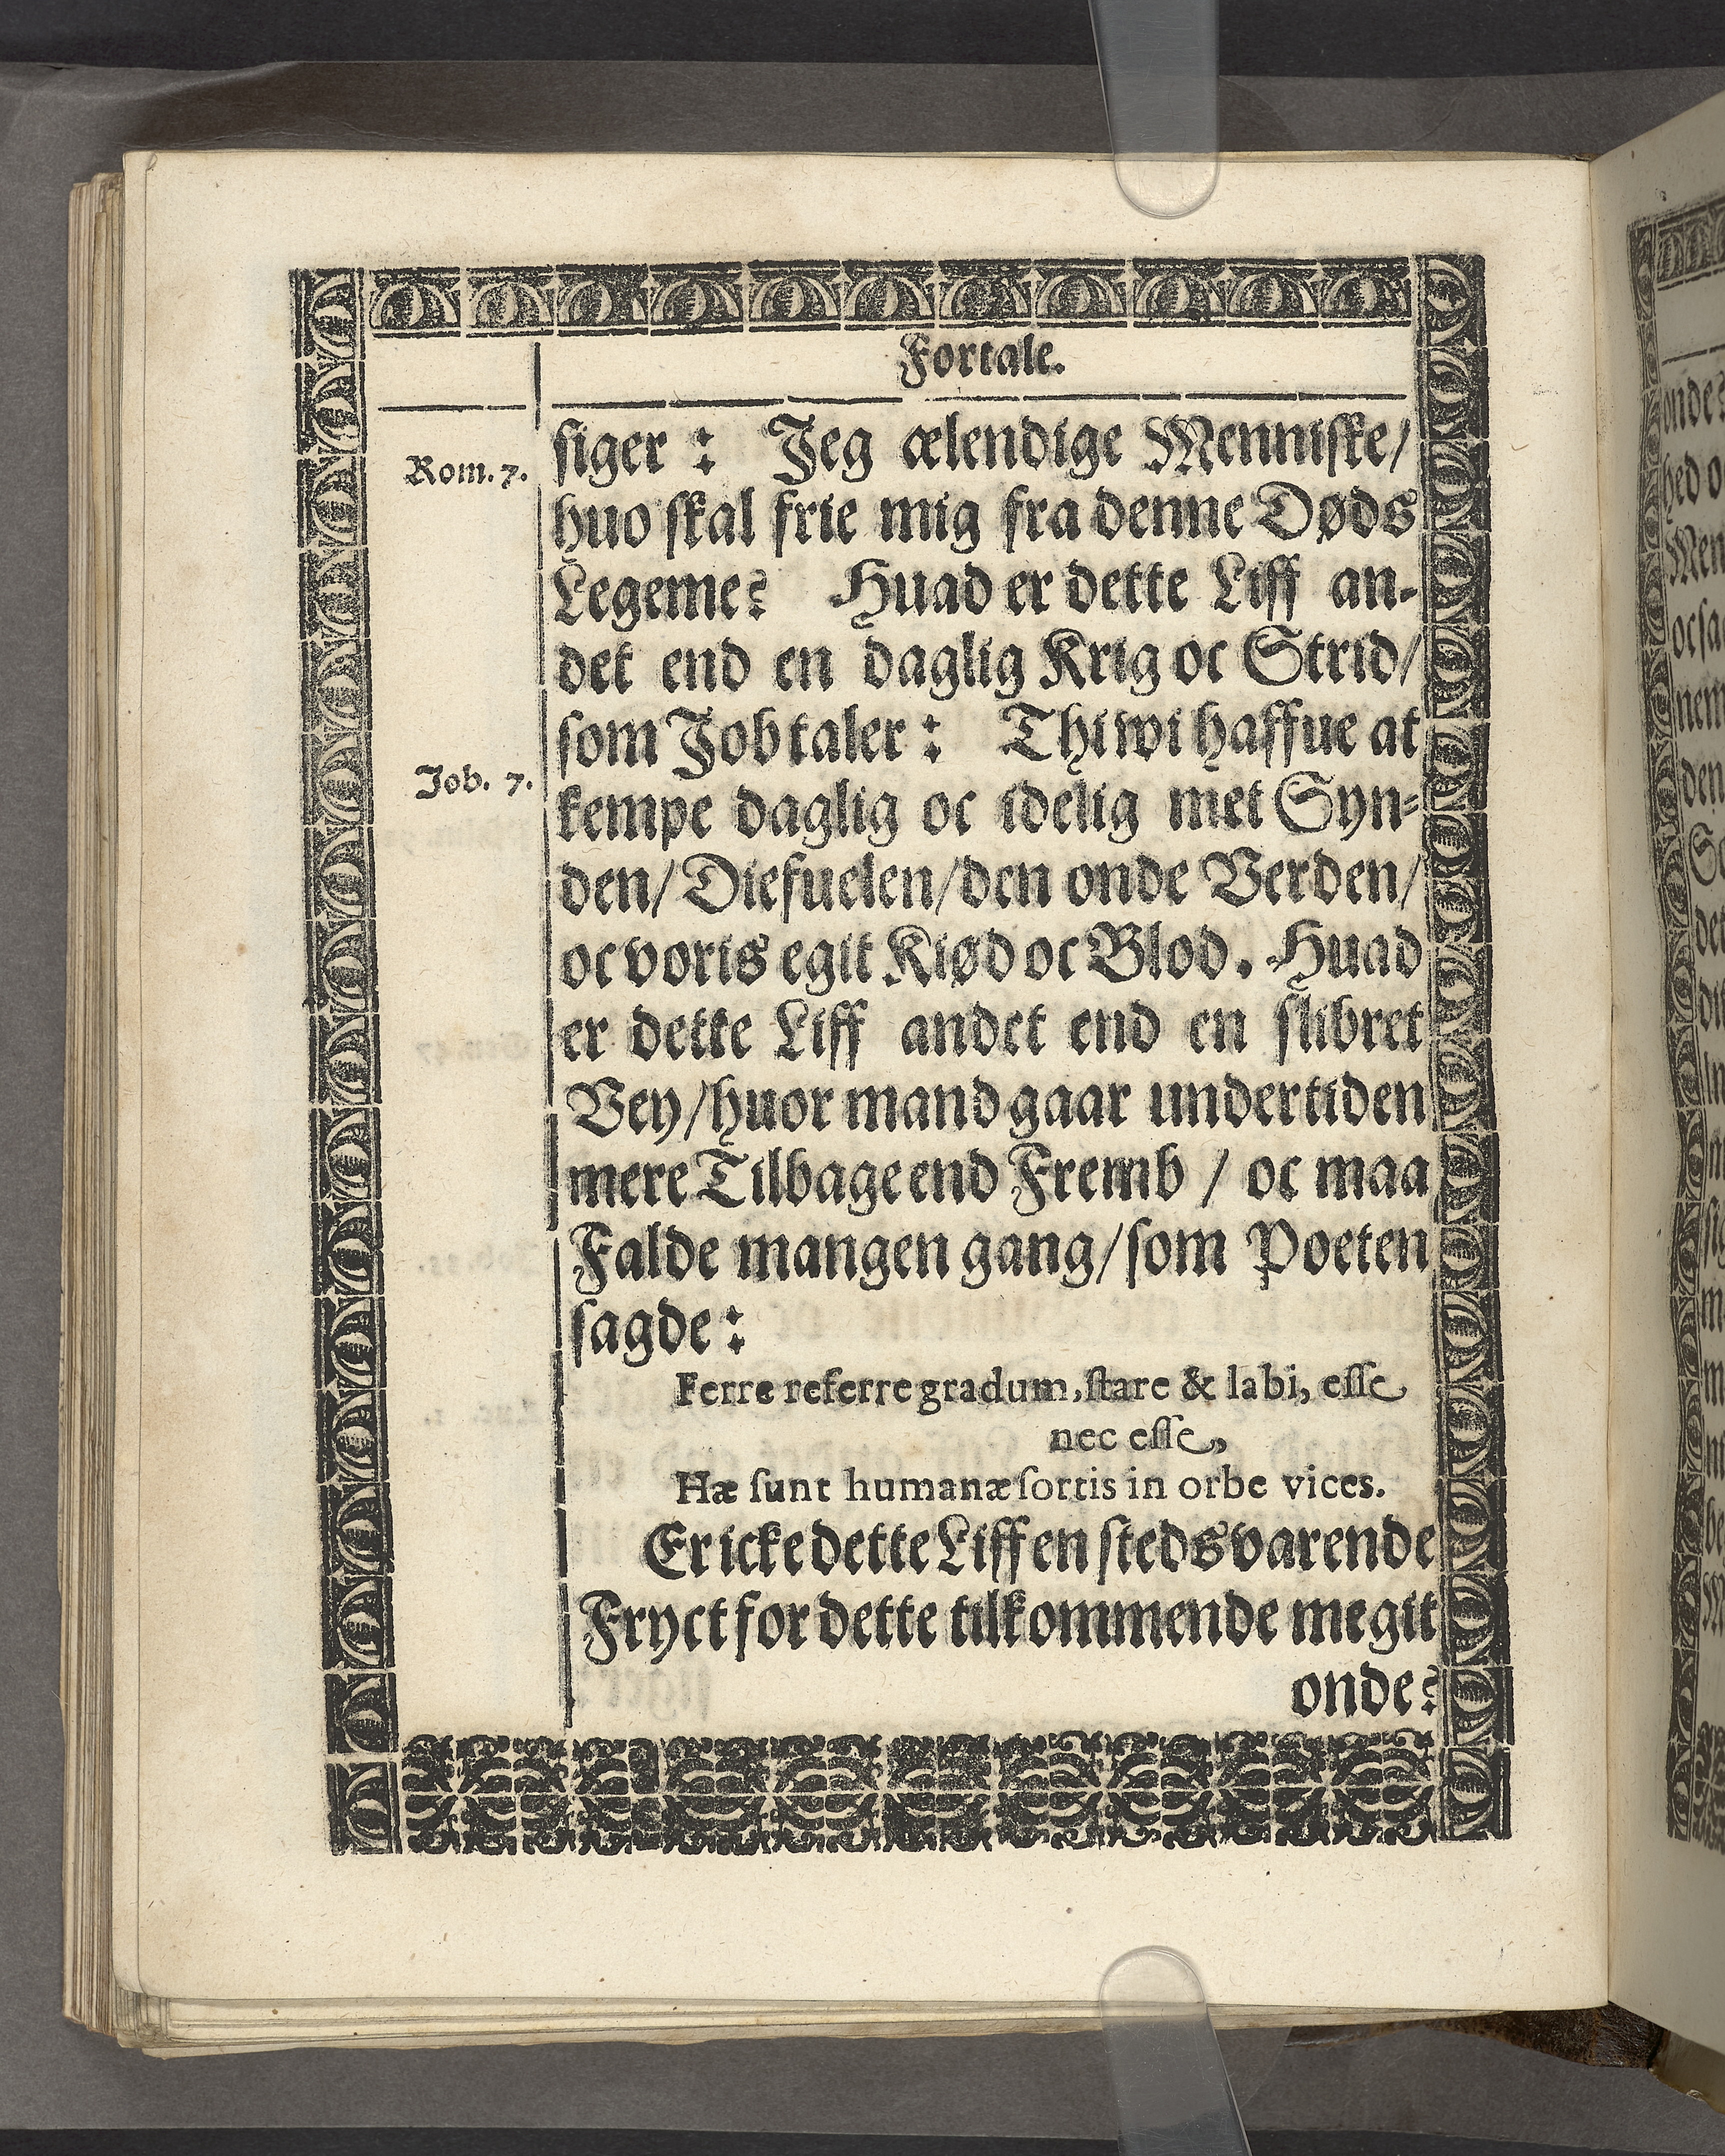 Fortale.
siger: Jeg ælendige Menniske/
Rom. 7.
huo skal frie mig fra denne Døds
Legeme? Huad er dette Liff an-
det end en daglig Krig oc Strid/
som Job taler: Thi wi haffue at
Job. 7.
kempe daglig oc idelig met Syn-
den/ Diefuelen/ den onde Verden/
oc voris egit Kiød oc Blod. Huad
er dette Liff andet end en slibret
Vey/ huor mand gaar undertiden
mere Tilbage end Fremb / oc maa
Falde mangen gang/ som Poeten
sagde:
Ferre referre gradum, stare & labi, esse
nec esse,
Hæ sunt humanæ sortis in orbe vices.
Er icke dette Liff en stedsvarende
Fryct for dette tilkommende megit
onde?